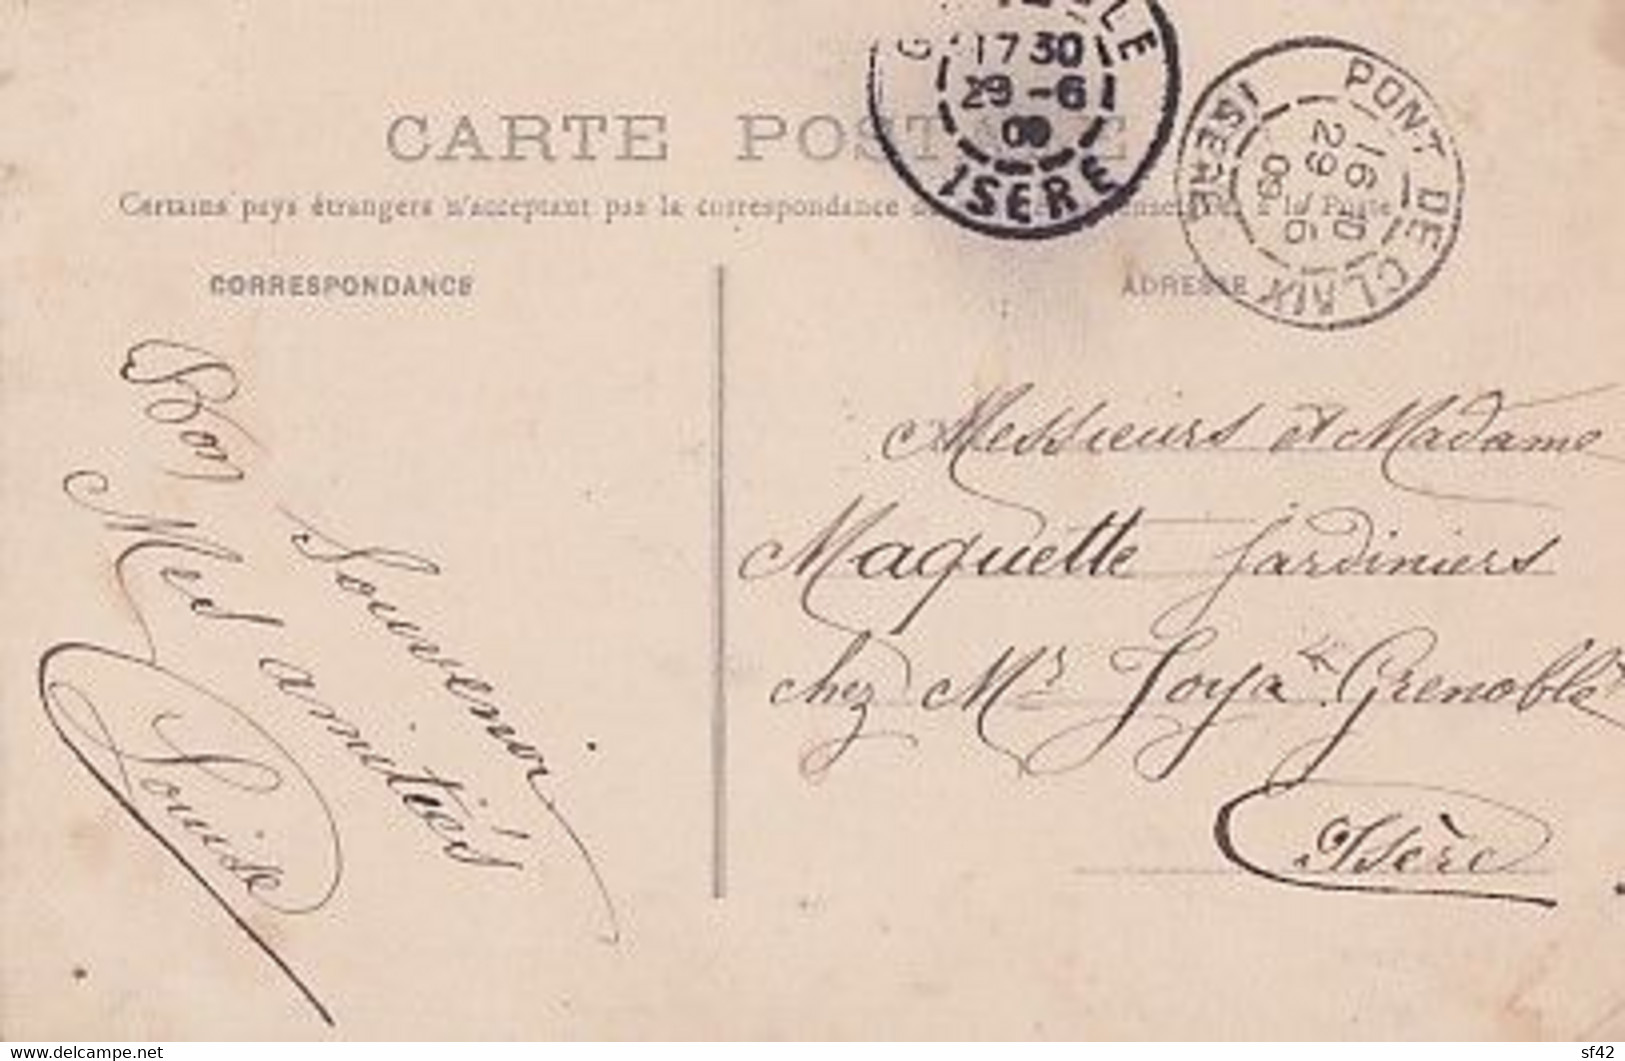 CARTE POSTALE
Certains pays étrangers n'acceptant pas la correspondance à la Poste
CORRESPONDANCE
ADRESSE
17 30
29-6
09
ISERE
PONT DE CLAIX
16
29 6
09
ISERE
Bon
Souvenir
Mes amitiés
Louise
Messieurs et Madame
Maquette Jardiniers
chez Mr Joya Grenoble
Isère
delcampe.net
sf42